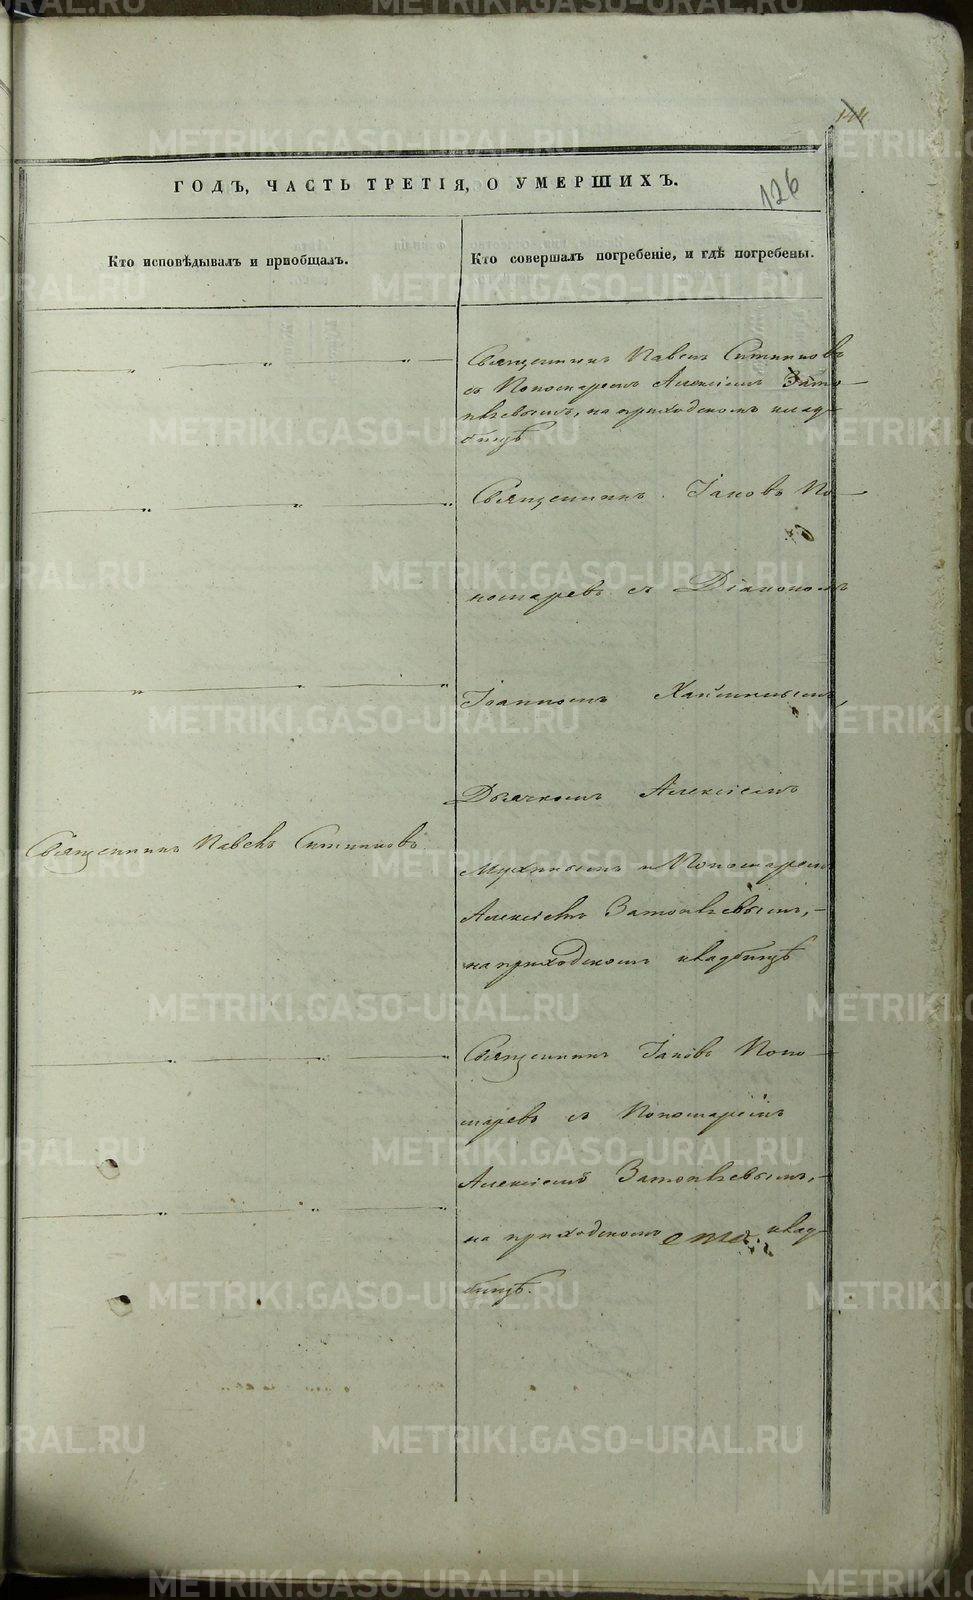 144
ГОДЪ, ЧАСТЬ ТРЕТІЯ, О УМЕРШИХЪ.
126
Кто исповѣдывалъ и пріобщалъ.
Кто совершалъ погребеніе, и гдѣ погребены.
Священникъ Павелъ Ситниковъ
съ Пономаремъ Алексіемъ Зато
пляевымъ, на приходскомъ клад-
бищѣ
Священникъ Іаковъ По-
номаревъ съ Діакономъ
Іоанномъ
Дьячкомъ Алексіемъ
Священникъ Павелъ Ситниковъ
Мухинымъ и Пономаремъ
Алексіемъ Затопляевымъ, -
на приходскомъ кладбищѣ
Священникъ Іаковъ Поно-
маревъ съ Пономаремъ
Алексіемъ Затопляевымъ, -
на приходскомъ клад-
бищѣ.
METRIKI.GASO-URAL.RU